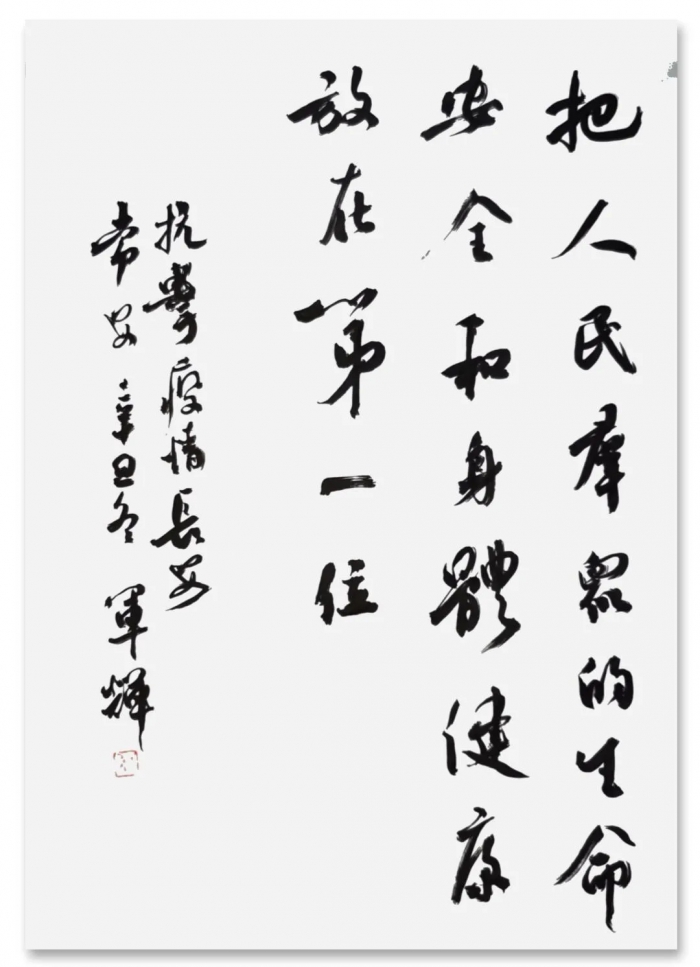 把人民群眾的生命
安全和身體健康
放在第一位
抗擊疫情長安
常安 辛丑冬 軍輝